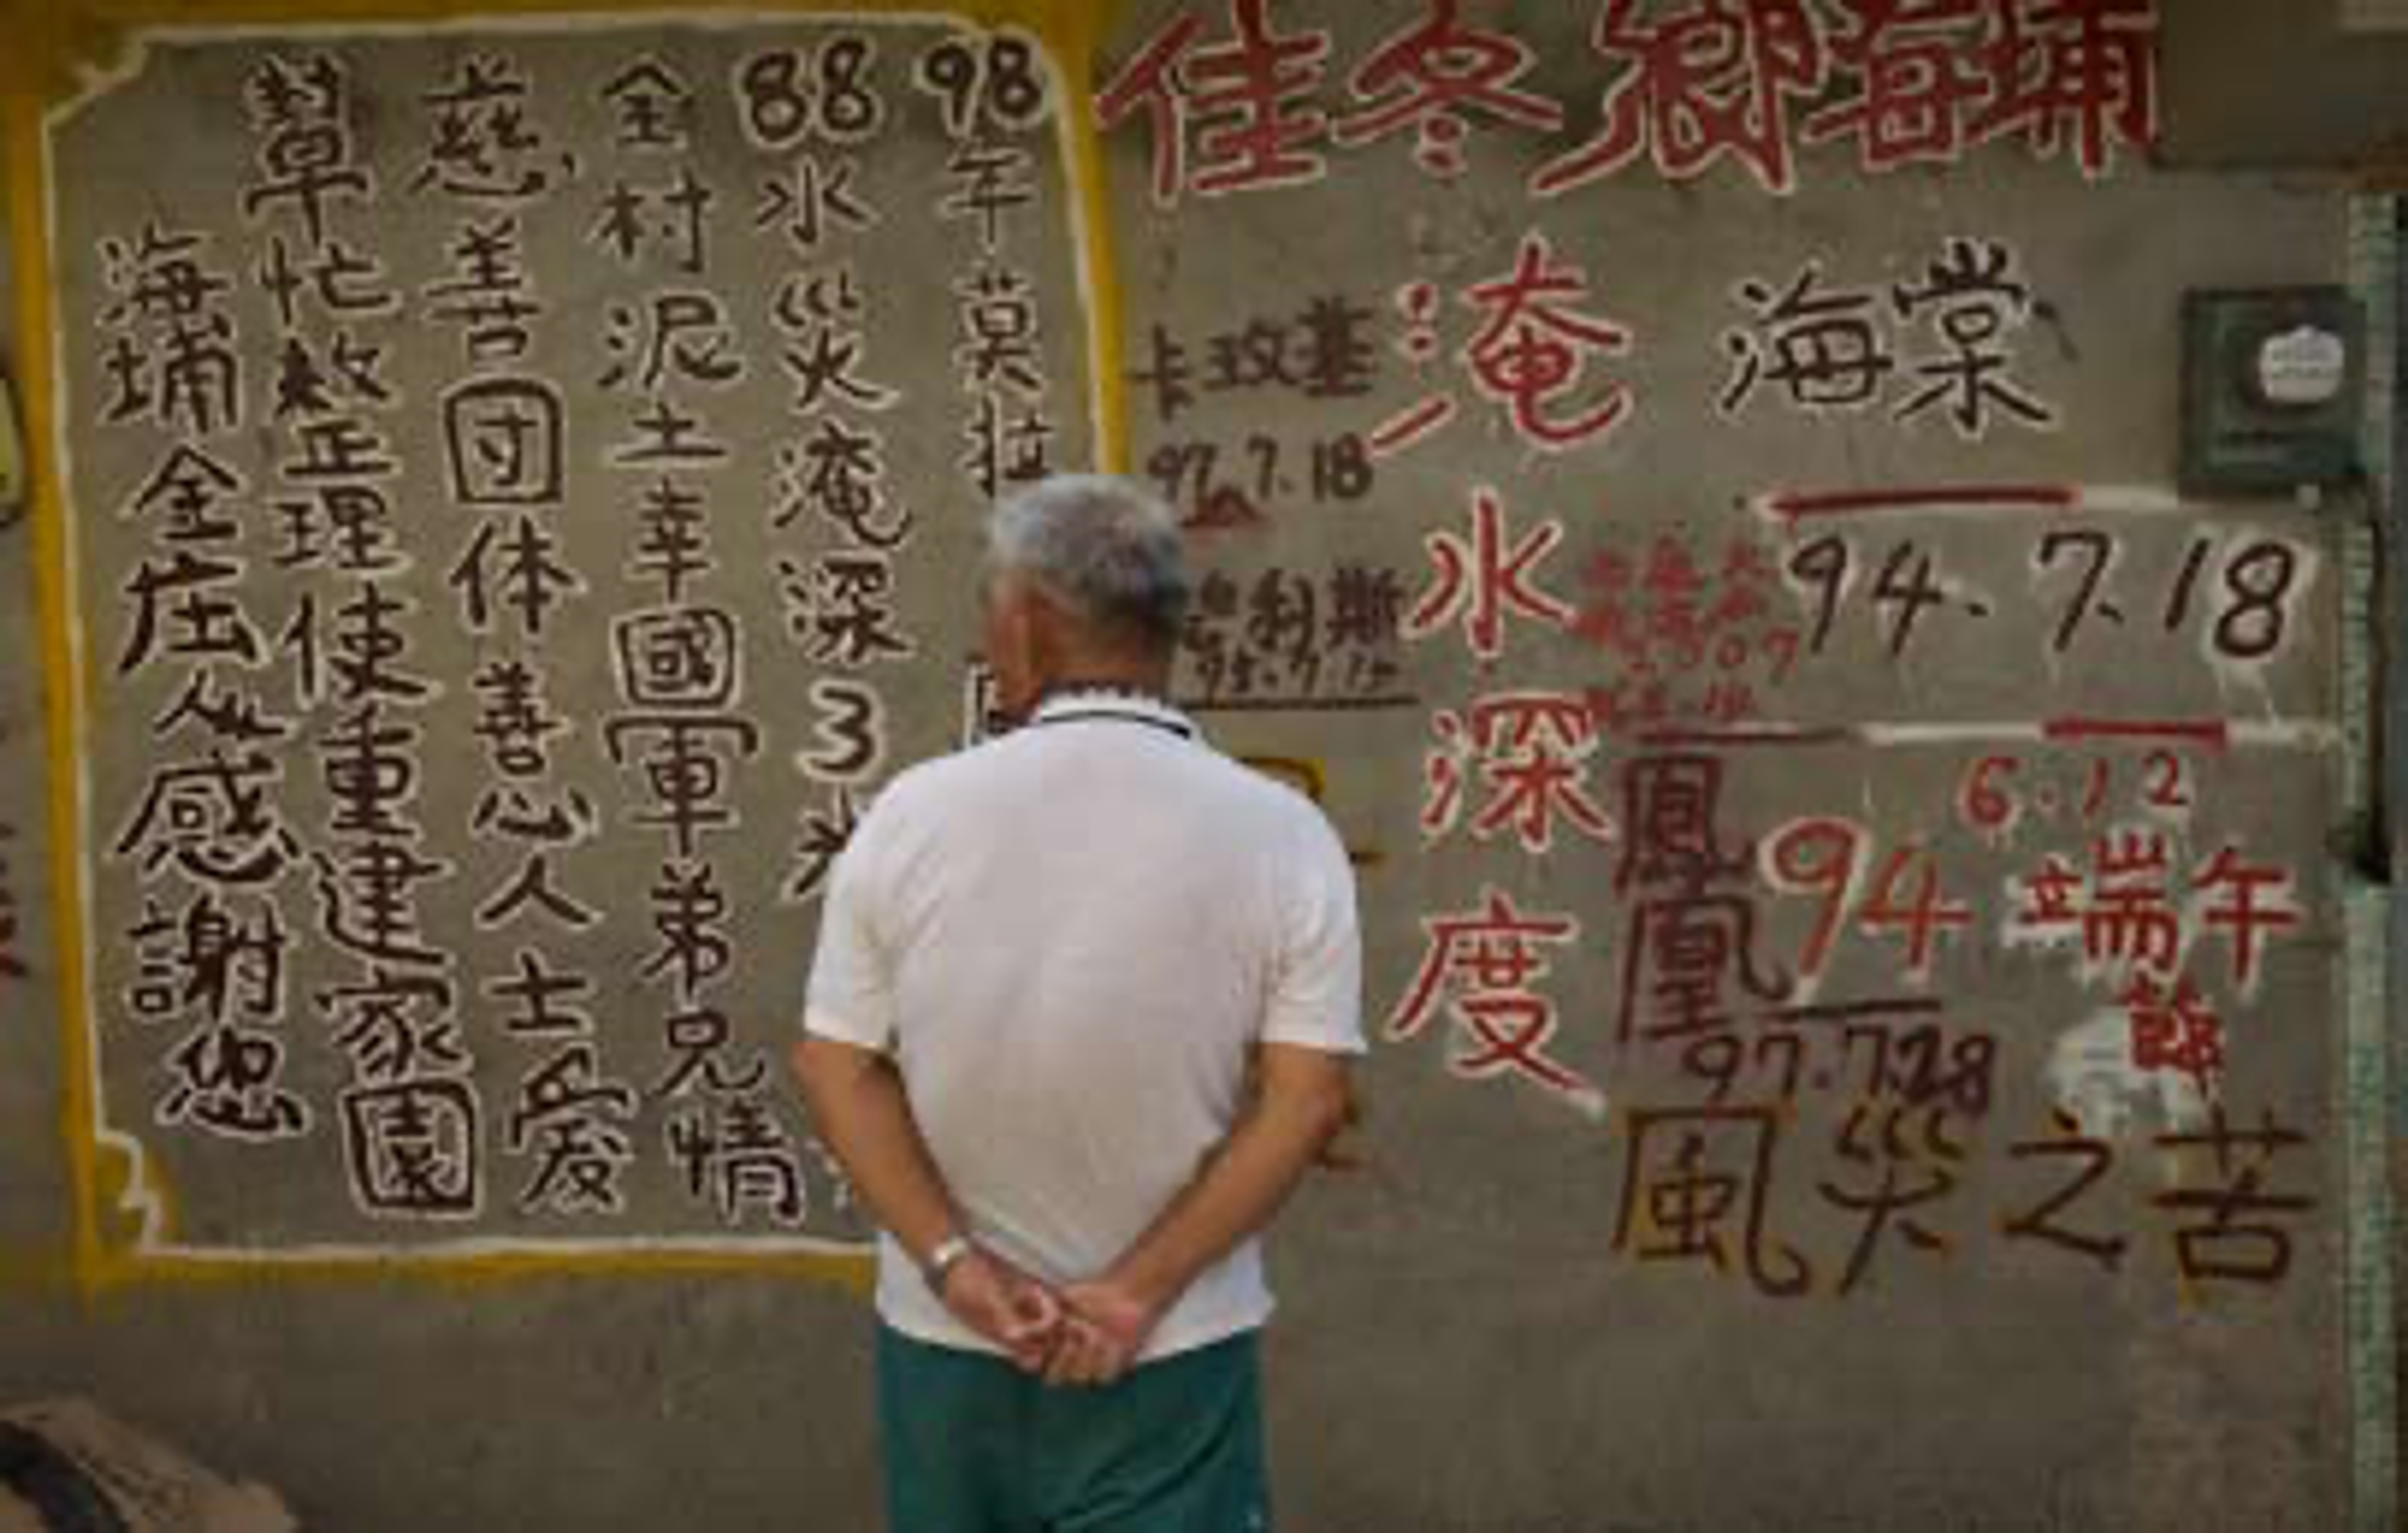 佳冬鄉海埔
海棠
94.7.18
6.12
94
端午節
淹水深度
鳳凰
97.7.28
風災之苦
卡玫基
97.7.18
利斯
98年莫拉
88水災淹深3米
全村泥土幸國軍弟兄情
慈善団体善心人士愛
幫忙救整理使重建家園
海埔全庄人感謝您